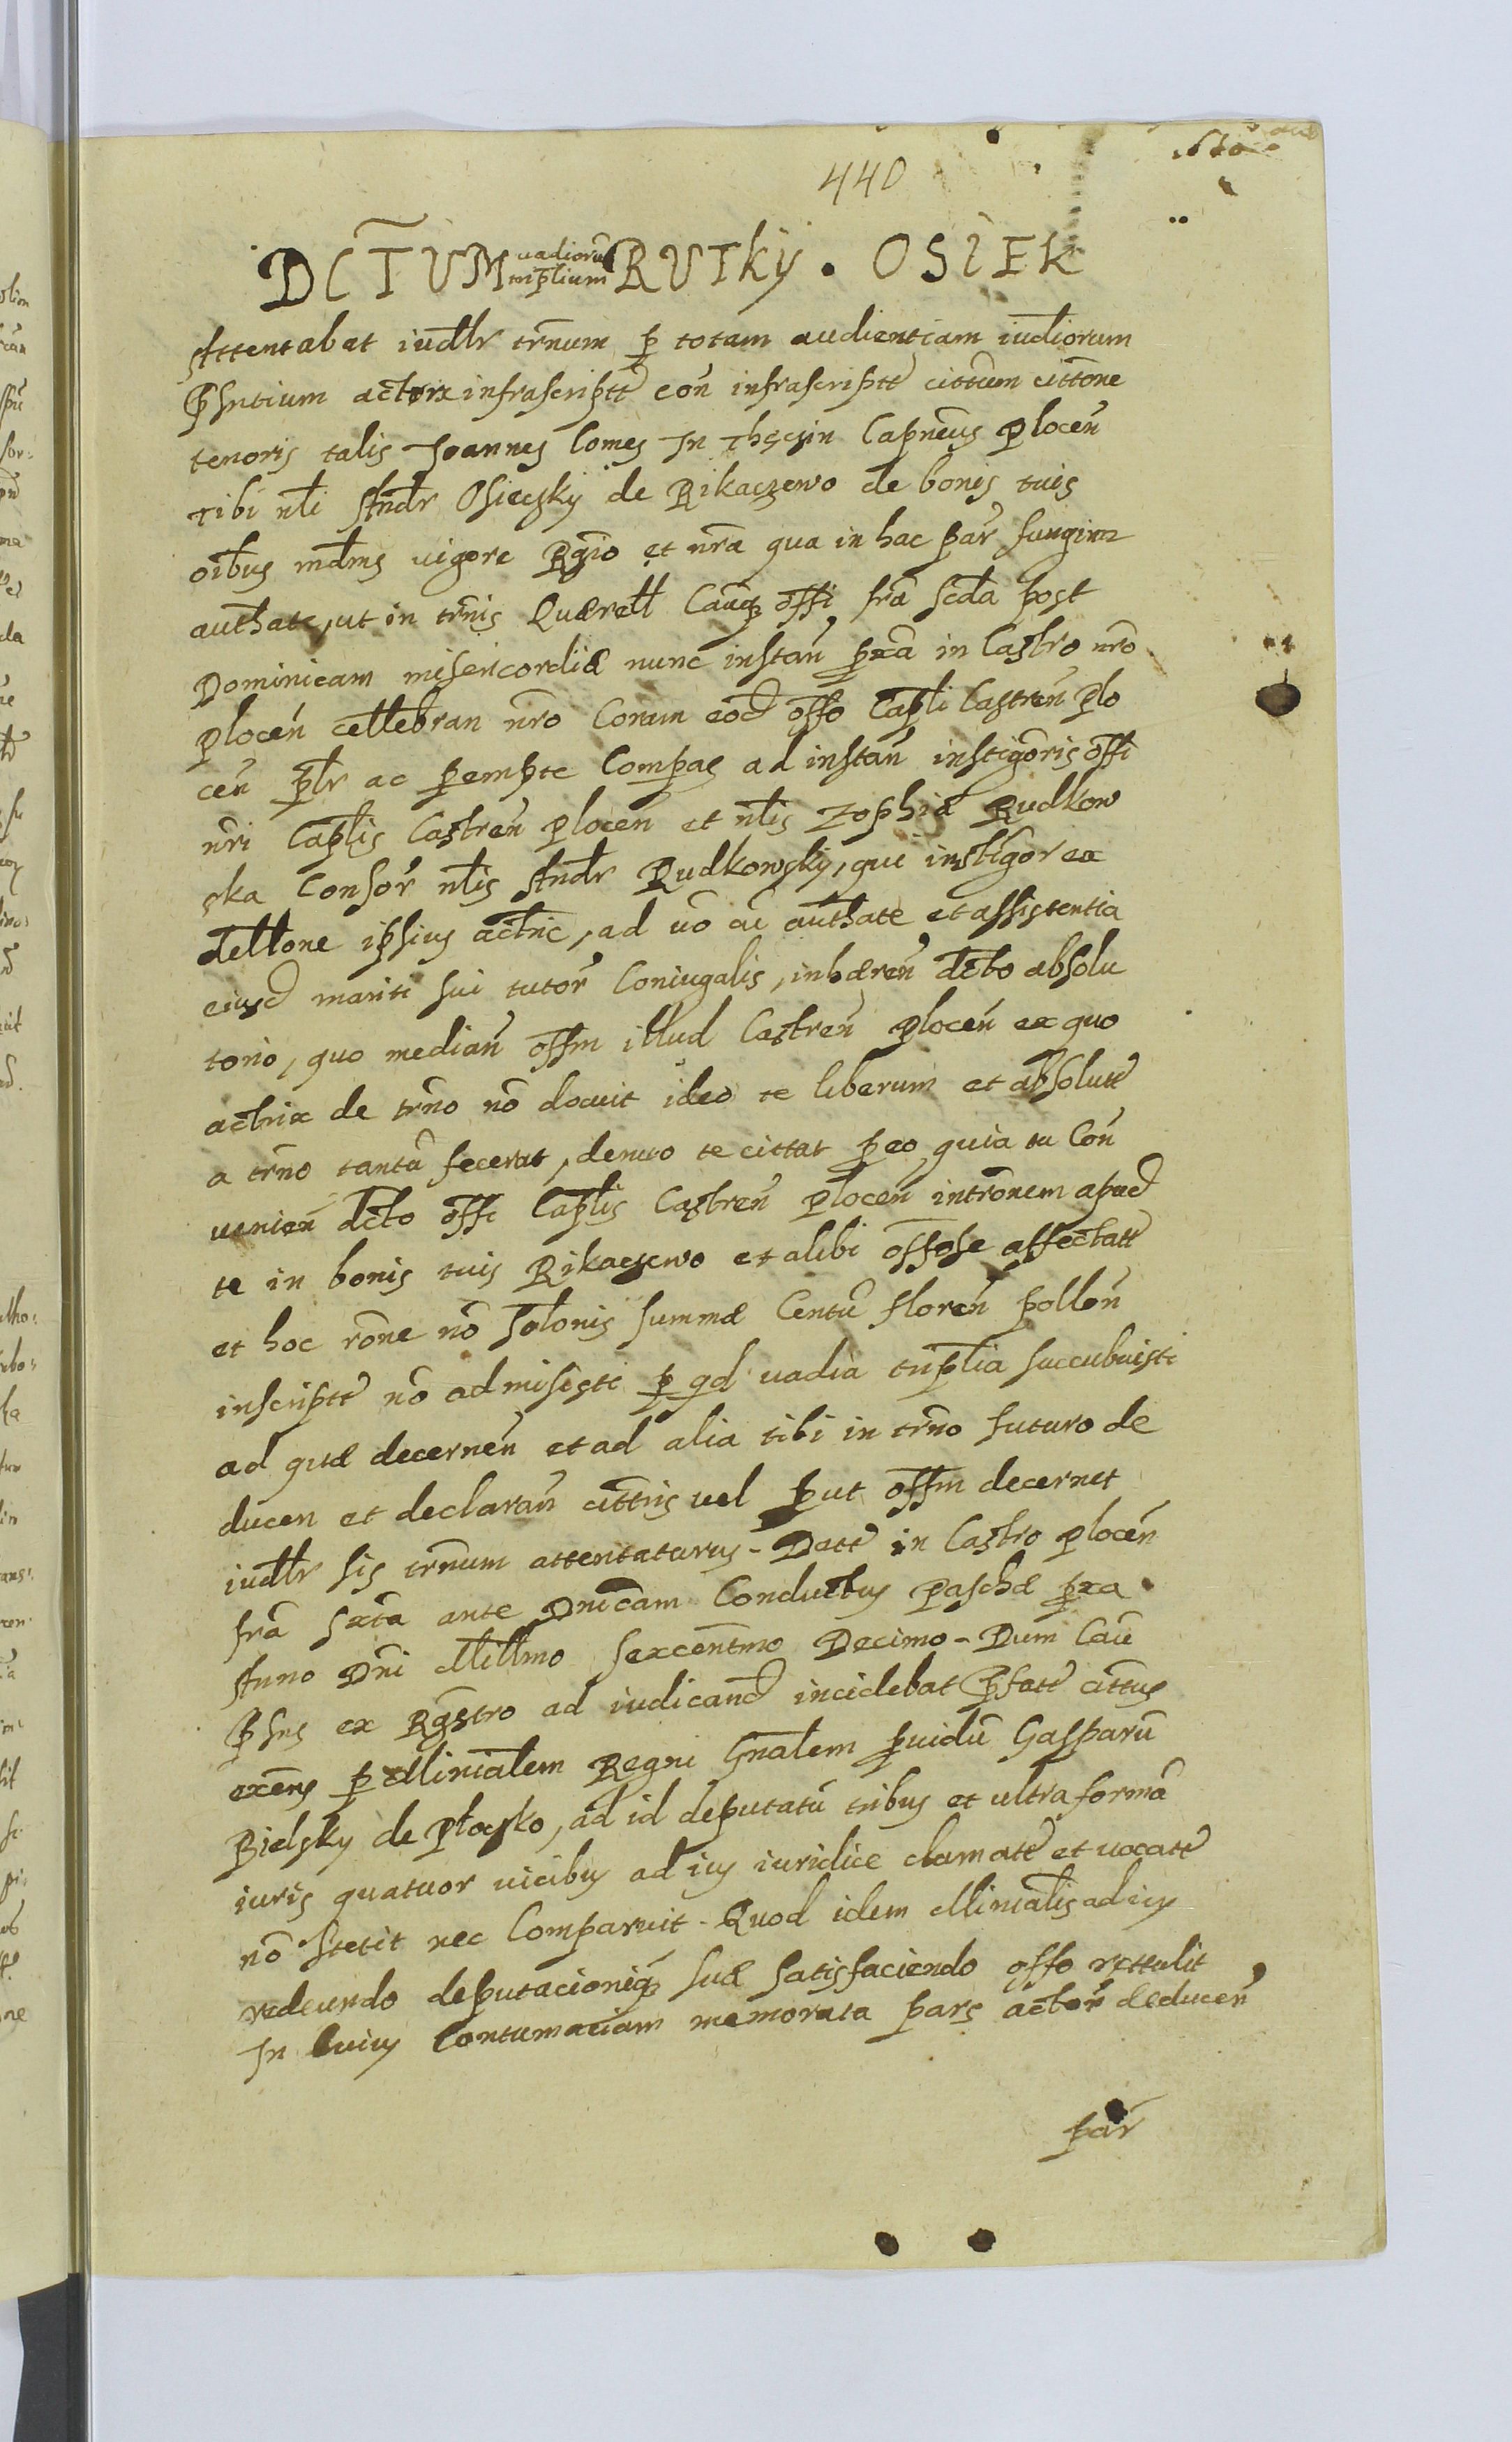 440
DCTUM vadiorũ triplium RUTky . OSIEK
Attentabat iudlr trnum p totam audientiam iudiorum
Psntium actorx infrascriptt con infrascriptt cittum cittone
tenoris talis Joannes Comes In Thęcin Capneus Plocen
Tibi nli Andr Osieczky de Rikaczewo de bonis tuis
oibus mdms vigore Rgio et nra qua in hac par fungimr
authate, ut in trnis Quærell Cauq offi fra scda post
Dominicam misericordiæ nunc instan pxa in Castro nro
Plocen cellebran nro Coram eod offo Capli Castren Plo
cen plr ac pempte Compas ad instan instigoris offi
nri Caplis Castren Plocen et nlis Zophiæ Rudkow
ska Consor nlis Andr Rudkowsky, qui instigor ex
dellone ipsius actric, ad uo ac authate et assistentia
eiusd mariti sui tutor Coniugalis, inhæren dcto absolu
torio, quo median offm illud Castren Plocen ex quo
actrix de trno no docuit ideo te liberum et absolutt
a trno tantũ fecerat, denuo te cittat peo quia tu Con
uenien dcto offi Caplis Castren Plocen intronem apud
te in bonis tuis Rikaczewo et alibi offose affectatt
et hoc rone no solonis summæ Centũ floren pollon
inscriptt no admisisti p qd vadia triplia succubuisti
ad quæ decernen et ad alia tibi in trno futuro de
ducen et declaran cittris vel put offm decernet
iudlr sis trnum attentaturus - Datt in Castro Plocen
fra sxta ante Dnicam Conductus Paschæ pxa
Anno Dni Millmo sexcentmo Decimo - Dum Cau
Psns ex Rgstro ad iudicand incidebat Pfatt cittus
exens p Minialem Regni Gnalem puidũ Gasparũ
Bielsky de Płocsko, ad id deputatũ tribus et ultra formã
iuris quatuor vicibus ad ius iuridice clamatt et vocatt
nõ stetit nec Comparuit - Quod idem Minialis ad ius
redeundo deputacioniq suæ satisfaciendo offo rettulit
In cuius Contumaciam memorata pars actor deducen
par